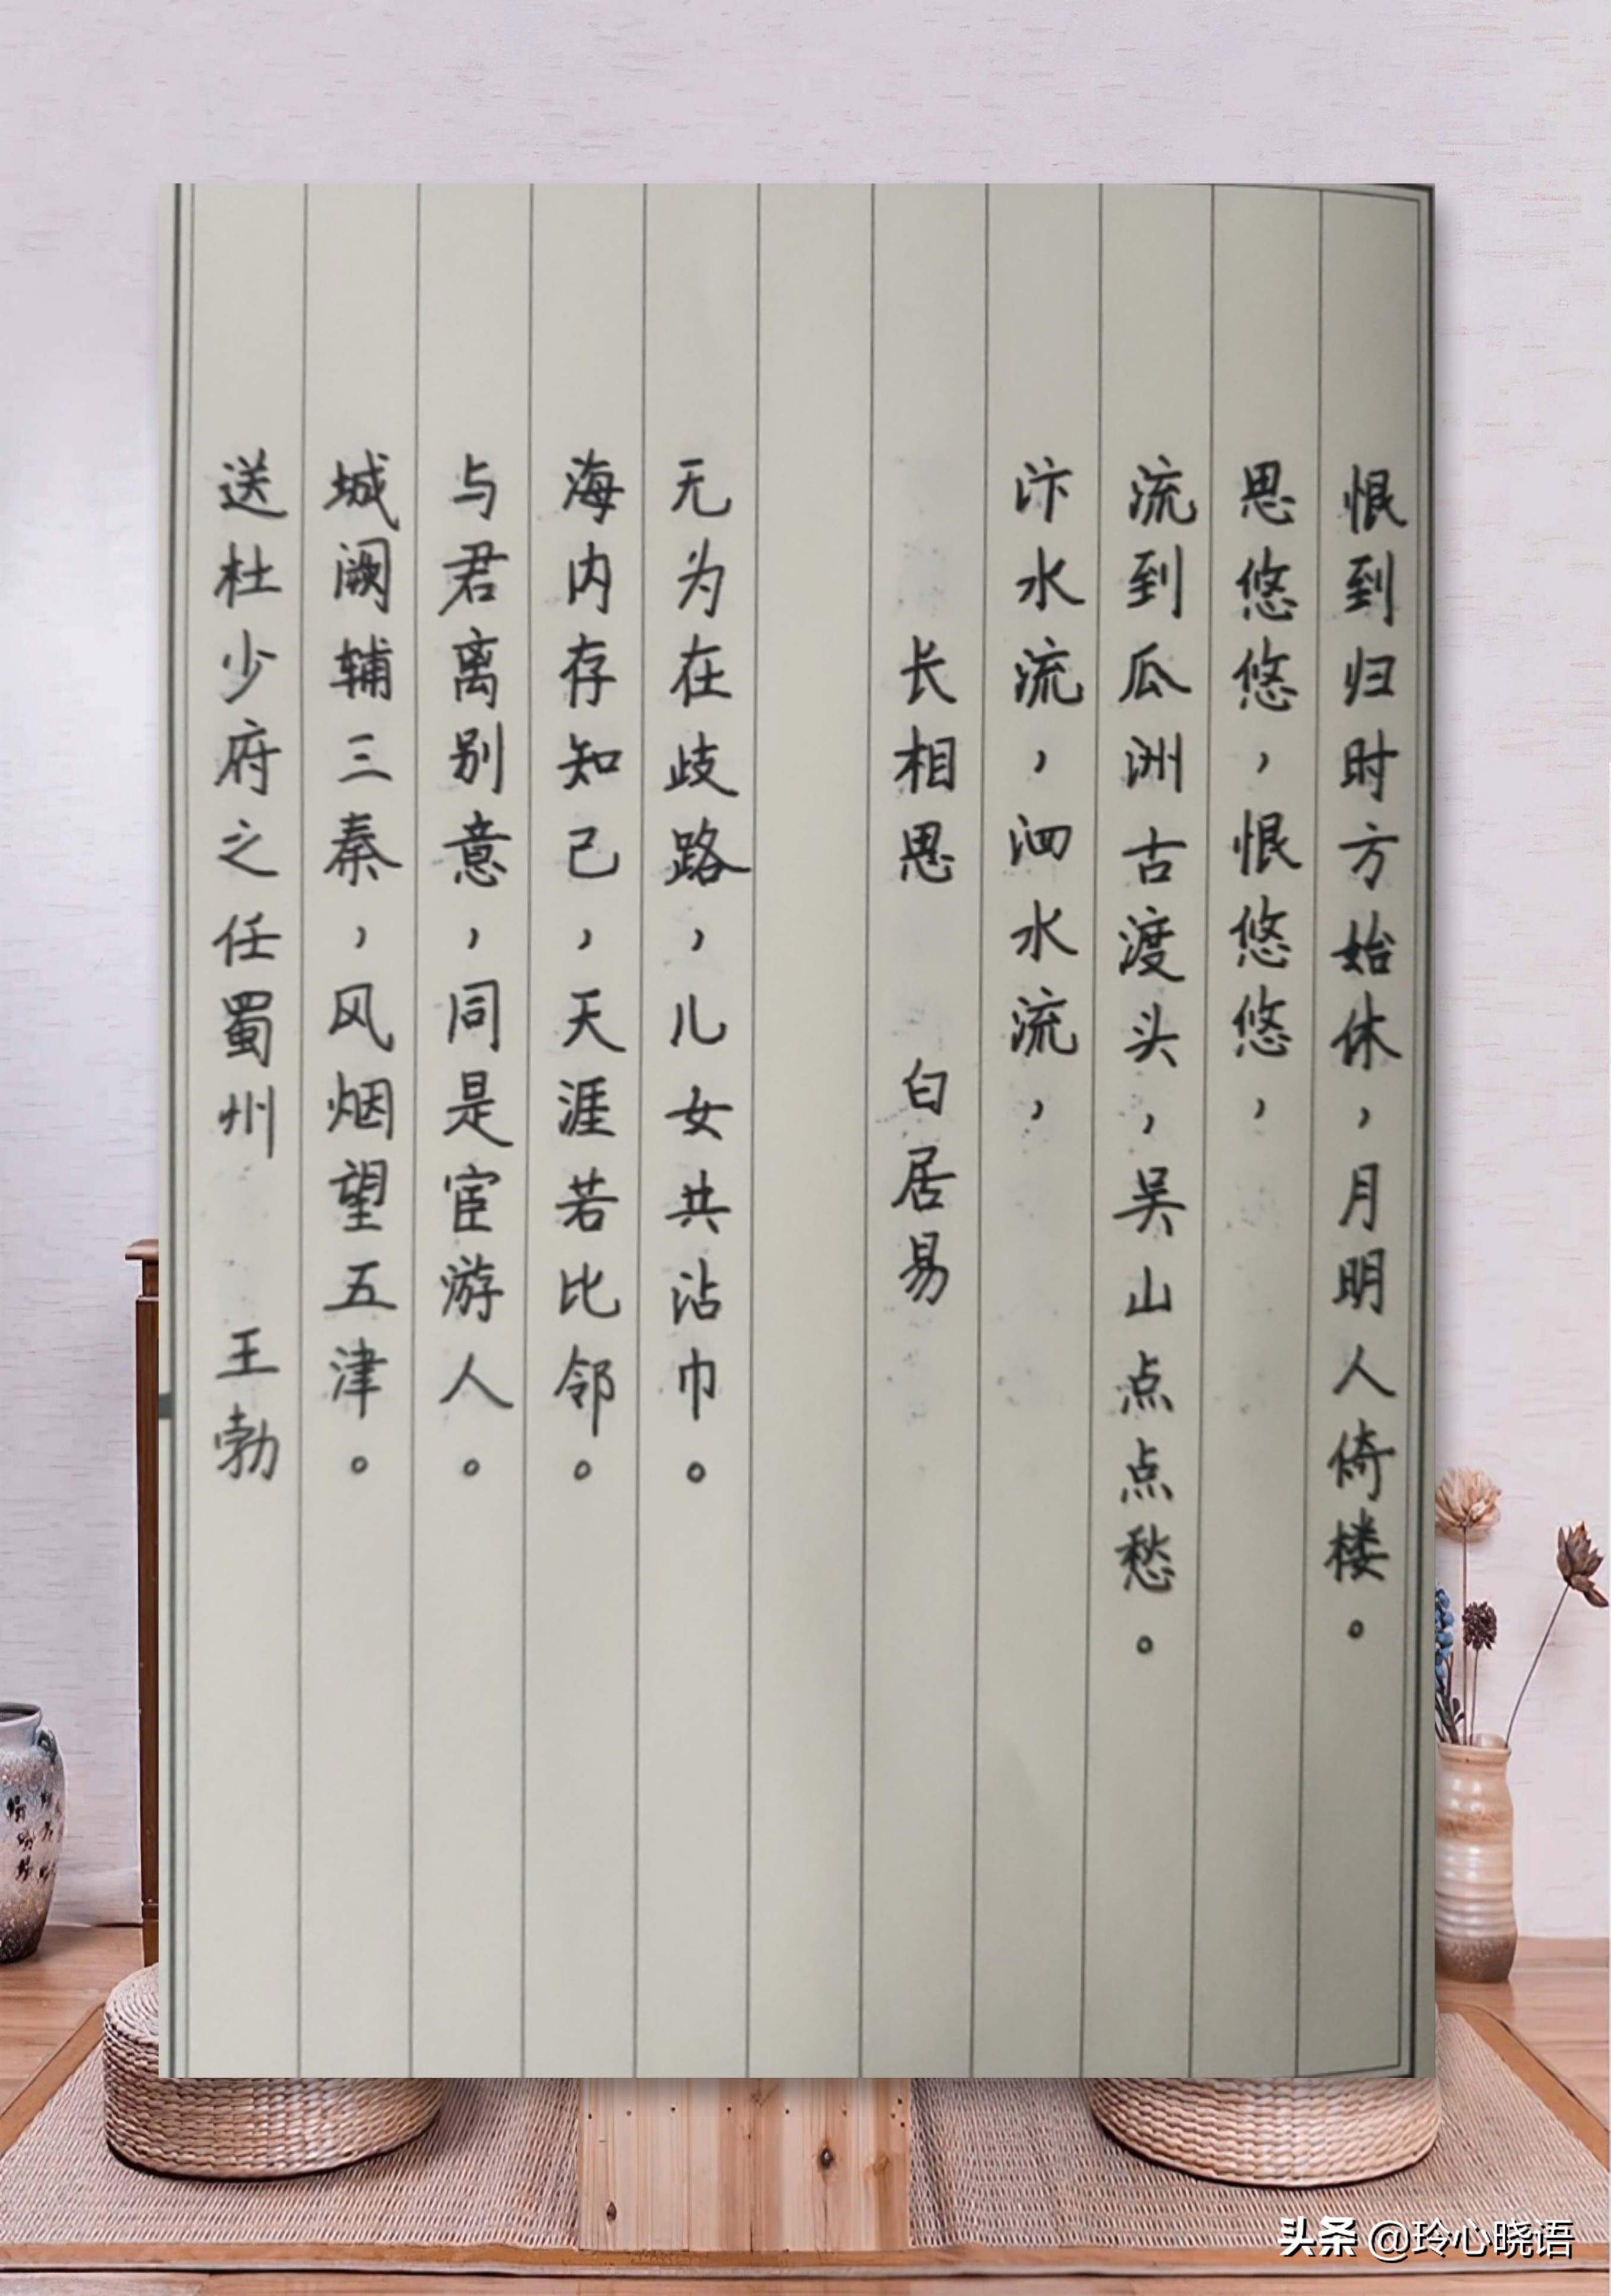 送杜少府之任蜀州 王勃
城阙辅三秦，风烟望五津。
与君离别意，同是宦游人。
海内存知己，天涯若比邻。
无为在歧路，儿女共沾巾。
长相思 白居易
汴水流，泗水流，
流到瓜洲古渡头，吴山点点愁。
思悠悠，恨悠悠，
恨到归时方始休，月明人倚楼。
头条 @玲心晓语